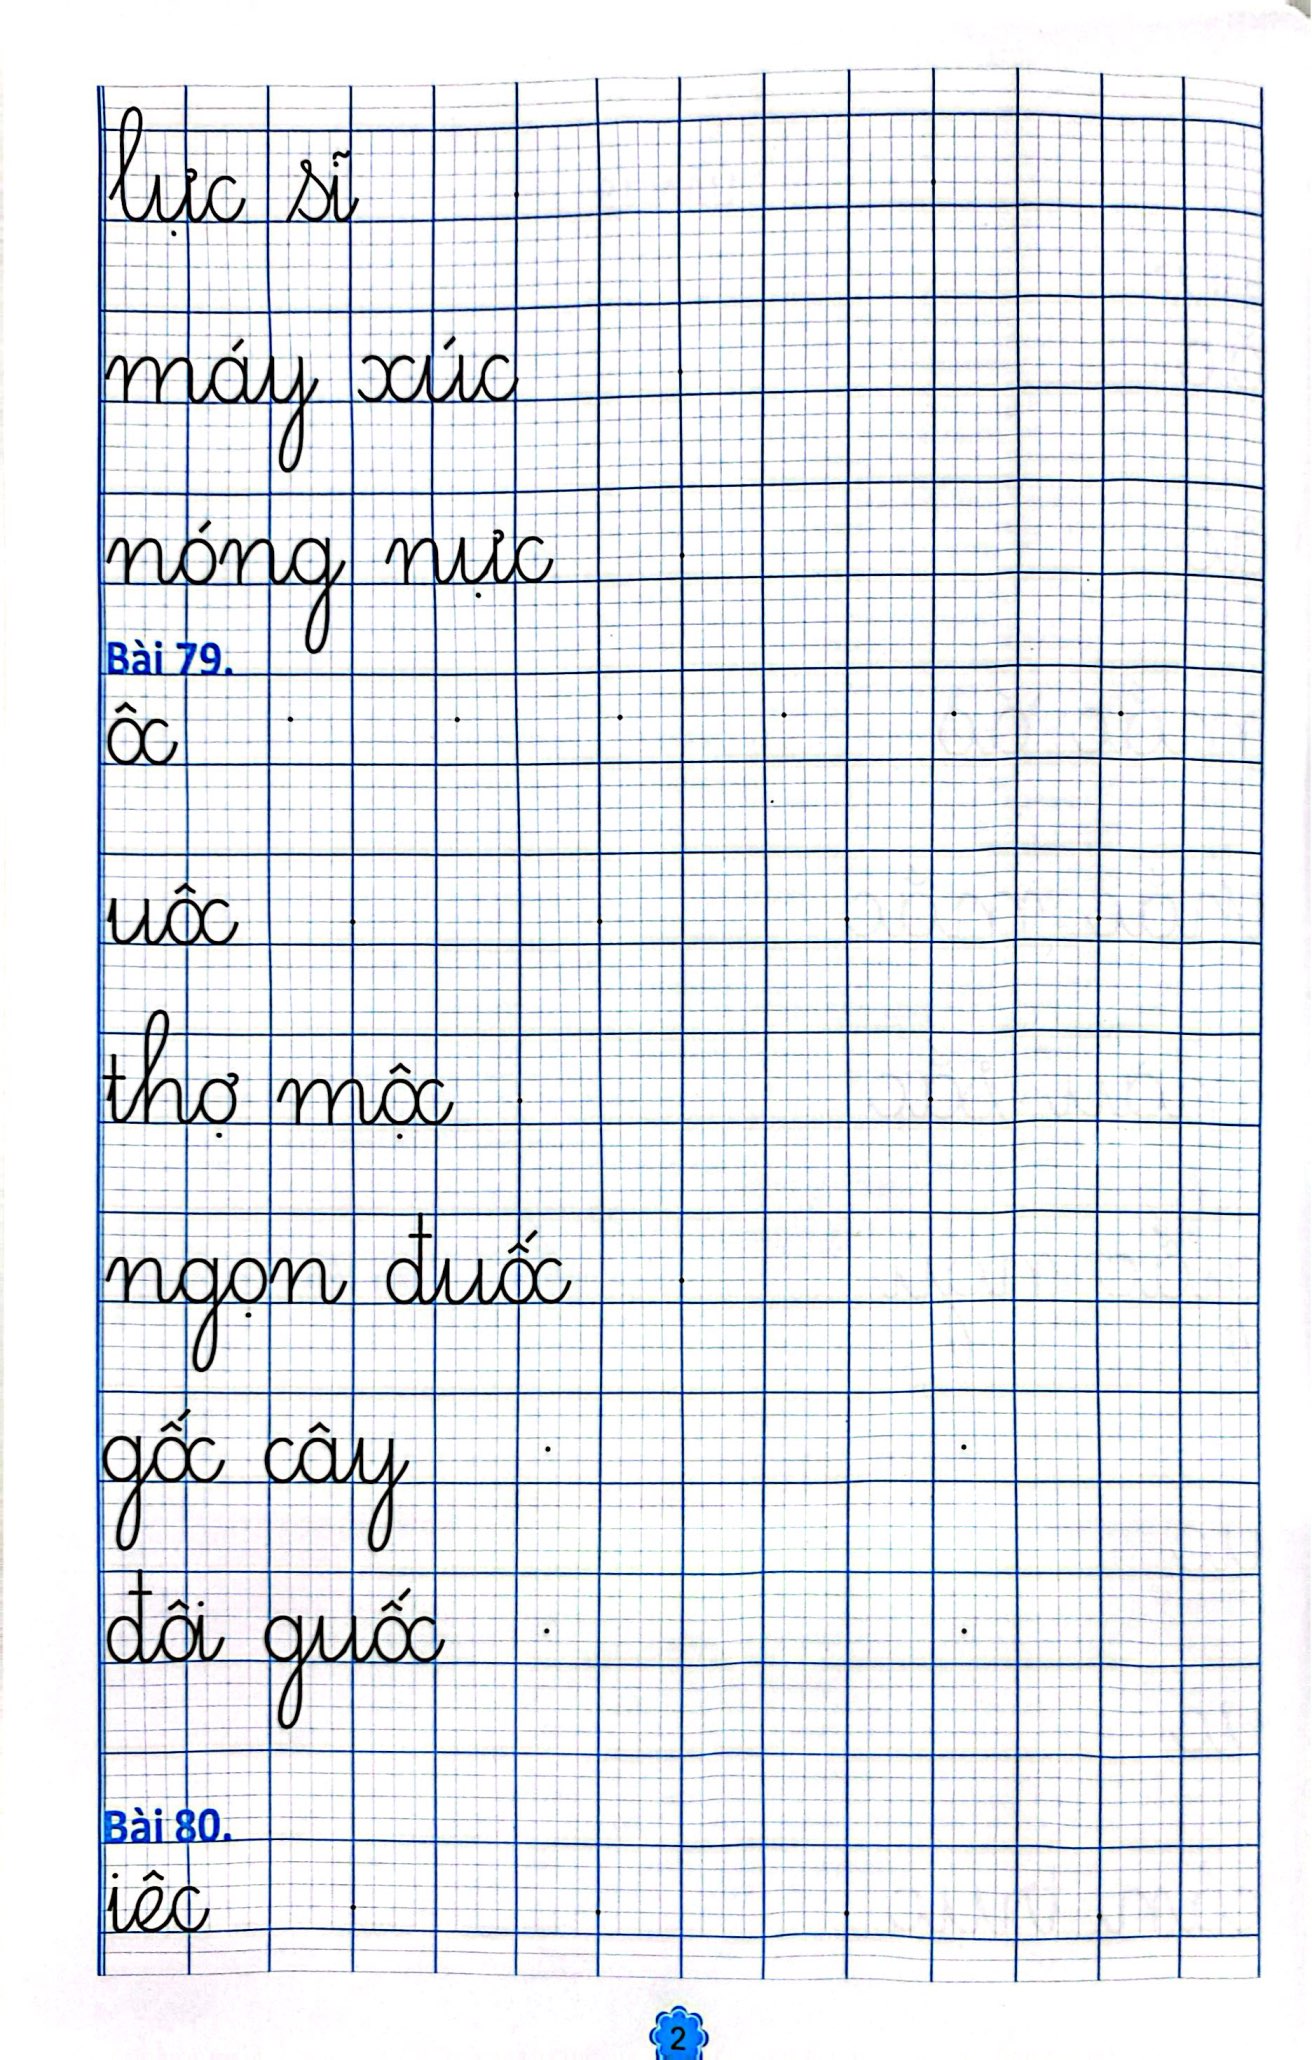 lực sĩ
máy xúc
nóng nực
Bài 79.
ôc
uôc
thợ mộc
ngọn đuốc
gốc cây
đôi guốc
Bài 80.
iêc
2